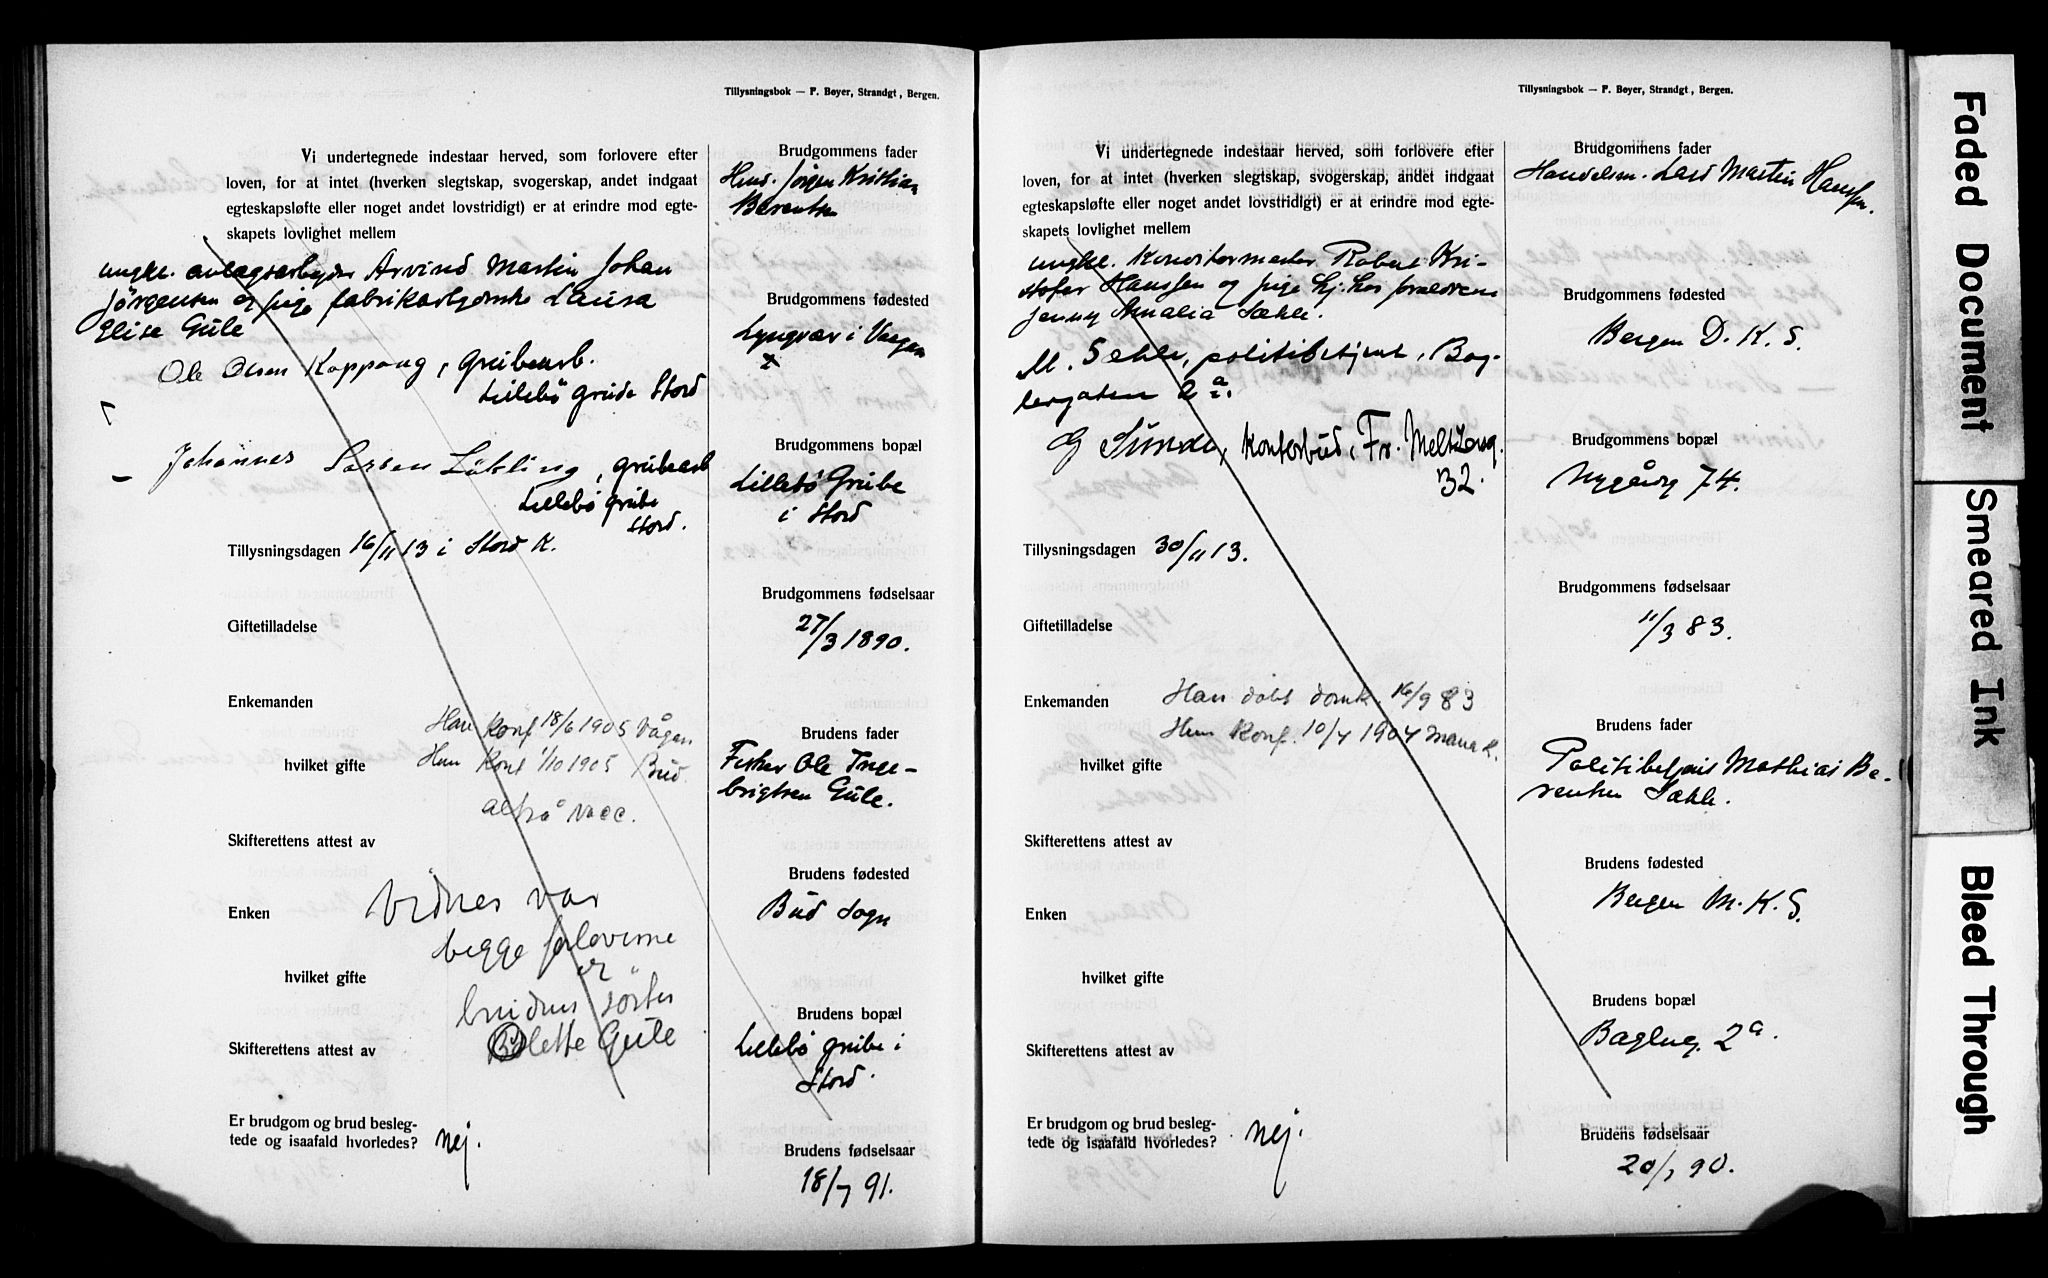 Tillysningsbok — F. Bøyer, Strandgt, Bergen.
Vi undertegnede indestaar herved, som forlovere efter
loven, for at intet (hverken slegtskap, svogerskap, andet indgaat
egteskapsløfte eller noget andet lovstridigt) er at erindre mod egte-
skapets lovlighet mellem
ungk. anlægsarbejder Arvind Martin Johan
Jörgensen og pige fabrikarbejderske
Elise Gule
Ole Olsen Koppang, Grubearb.
Lillebö grube Stord
Johannes Larsen, grubearb
Lillebö grube
Stord.
Tillysningsdagen 16/11 13 i Stord K.
Giftetilladelse
Enkemanden
Han konf 18/6 1905 Vågan
hvilket gifte
Hun konf 1/10 1905 Bud
altså vacc.
Skifterettens attest av
Vidner var
Enken
begge forloverne
hvilket gifte
og
brudens söster
Skifterettens attest av
Olette Gule
Er brudgom og brud besleg-
tede og isaafald hvorledes? Nej.
Brudgommens fader
Jörgen Kristian
Berentsen
Brudgommens fødested
Lyngvær i Vaagan
Brudgommens bopæl
Lillebö Grube
i Stord
Brudgommens fødselsaar
27/3 1890.
Brudens fader
Fisker Ole Inge-
brigtsen Gule.
Brudens fødested
Bud Sogn
Brudens bopæl
Lillebö grube i
Stord.
Brudens fødselsaar
18/7 91.
Tillysningsbok — F. Bøyer, Strandgt, Bergen.
Vi undertegnede indestaar herved, som forlovere efter
loven, for at intet (hverken slegtskap, svogerskap, andet indgaat
egteskapsløfte eller noget andet lovstridigt) er at erindre mod egte-
skapets lovlighet mellem
ungk. Robert Kri-
stofer Hanssen og pige hj. hos forældrene
Jenny Amalia Sæhle.
M. Sæhle, politibetjent, Bag-
lergaten 2a.
G Sunde, kontorbud, Fr. Meltzersg.
32.
Tillysningsdagen 30/11 13.
Giftetilladelse
Enkemanden Han döbt domk. 16/9 83
Hun konf. 10/4 1904 Mariak.
hvilket gifte
Skifterettens attest av
Enken
hvilket gifte
Skifterettens attest av
Er brudgom og brud besleg-
tede og isaafald hvorledes? Nej.
Brudgommens fader
Handelsm. Lars Martin Hanssen.
Brudgommens fødested
Bergen D. K. S.
Brudgommens bopæl
Nygårdsg 74.
Brudgommens fødselsaar
11/3 83.
Brudens fader
Politibetjent Mathias Be-
rentsen Sæhle.
Brudens fødested
Bergen M. K. S.
Brudens bopæl
Baglerg. 2a.
Brudens fødselsaar
20/1 90.
Faded Document
Smeared Ink
Bleed Through